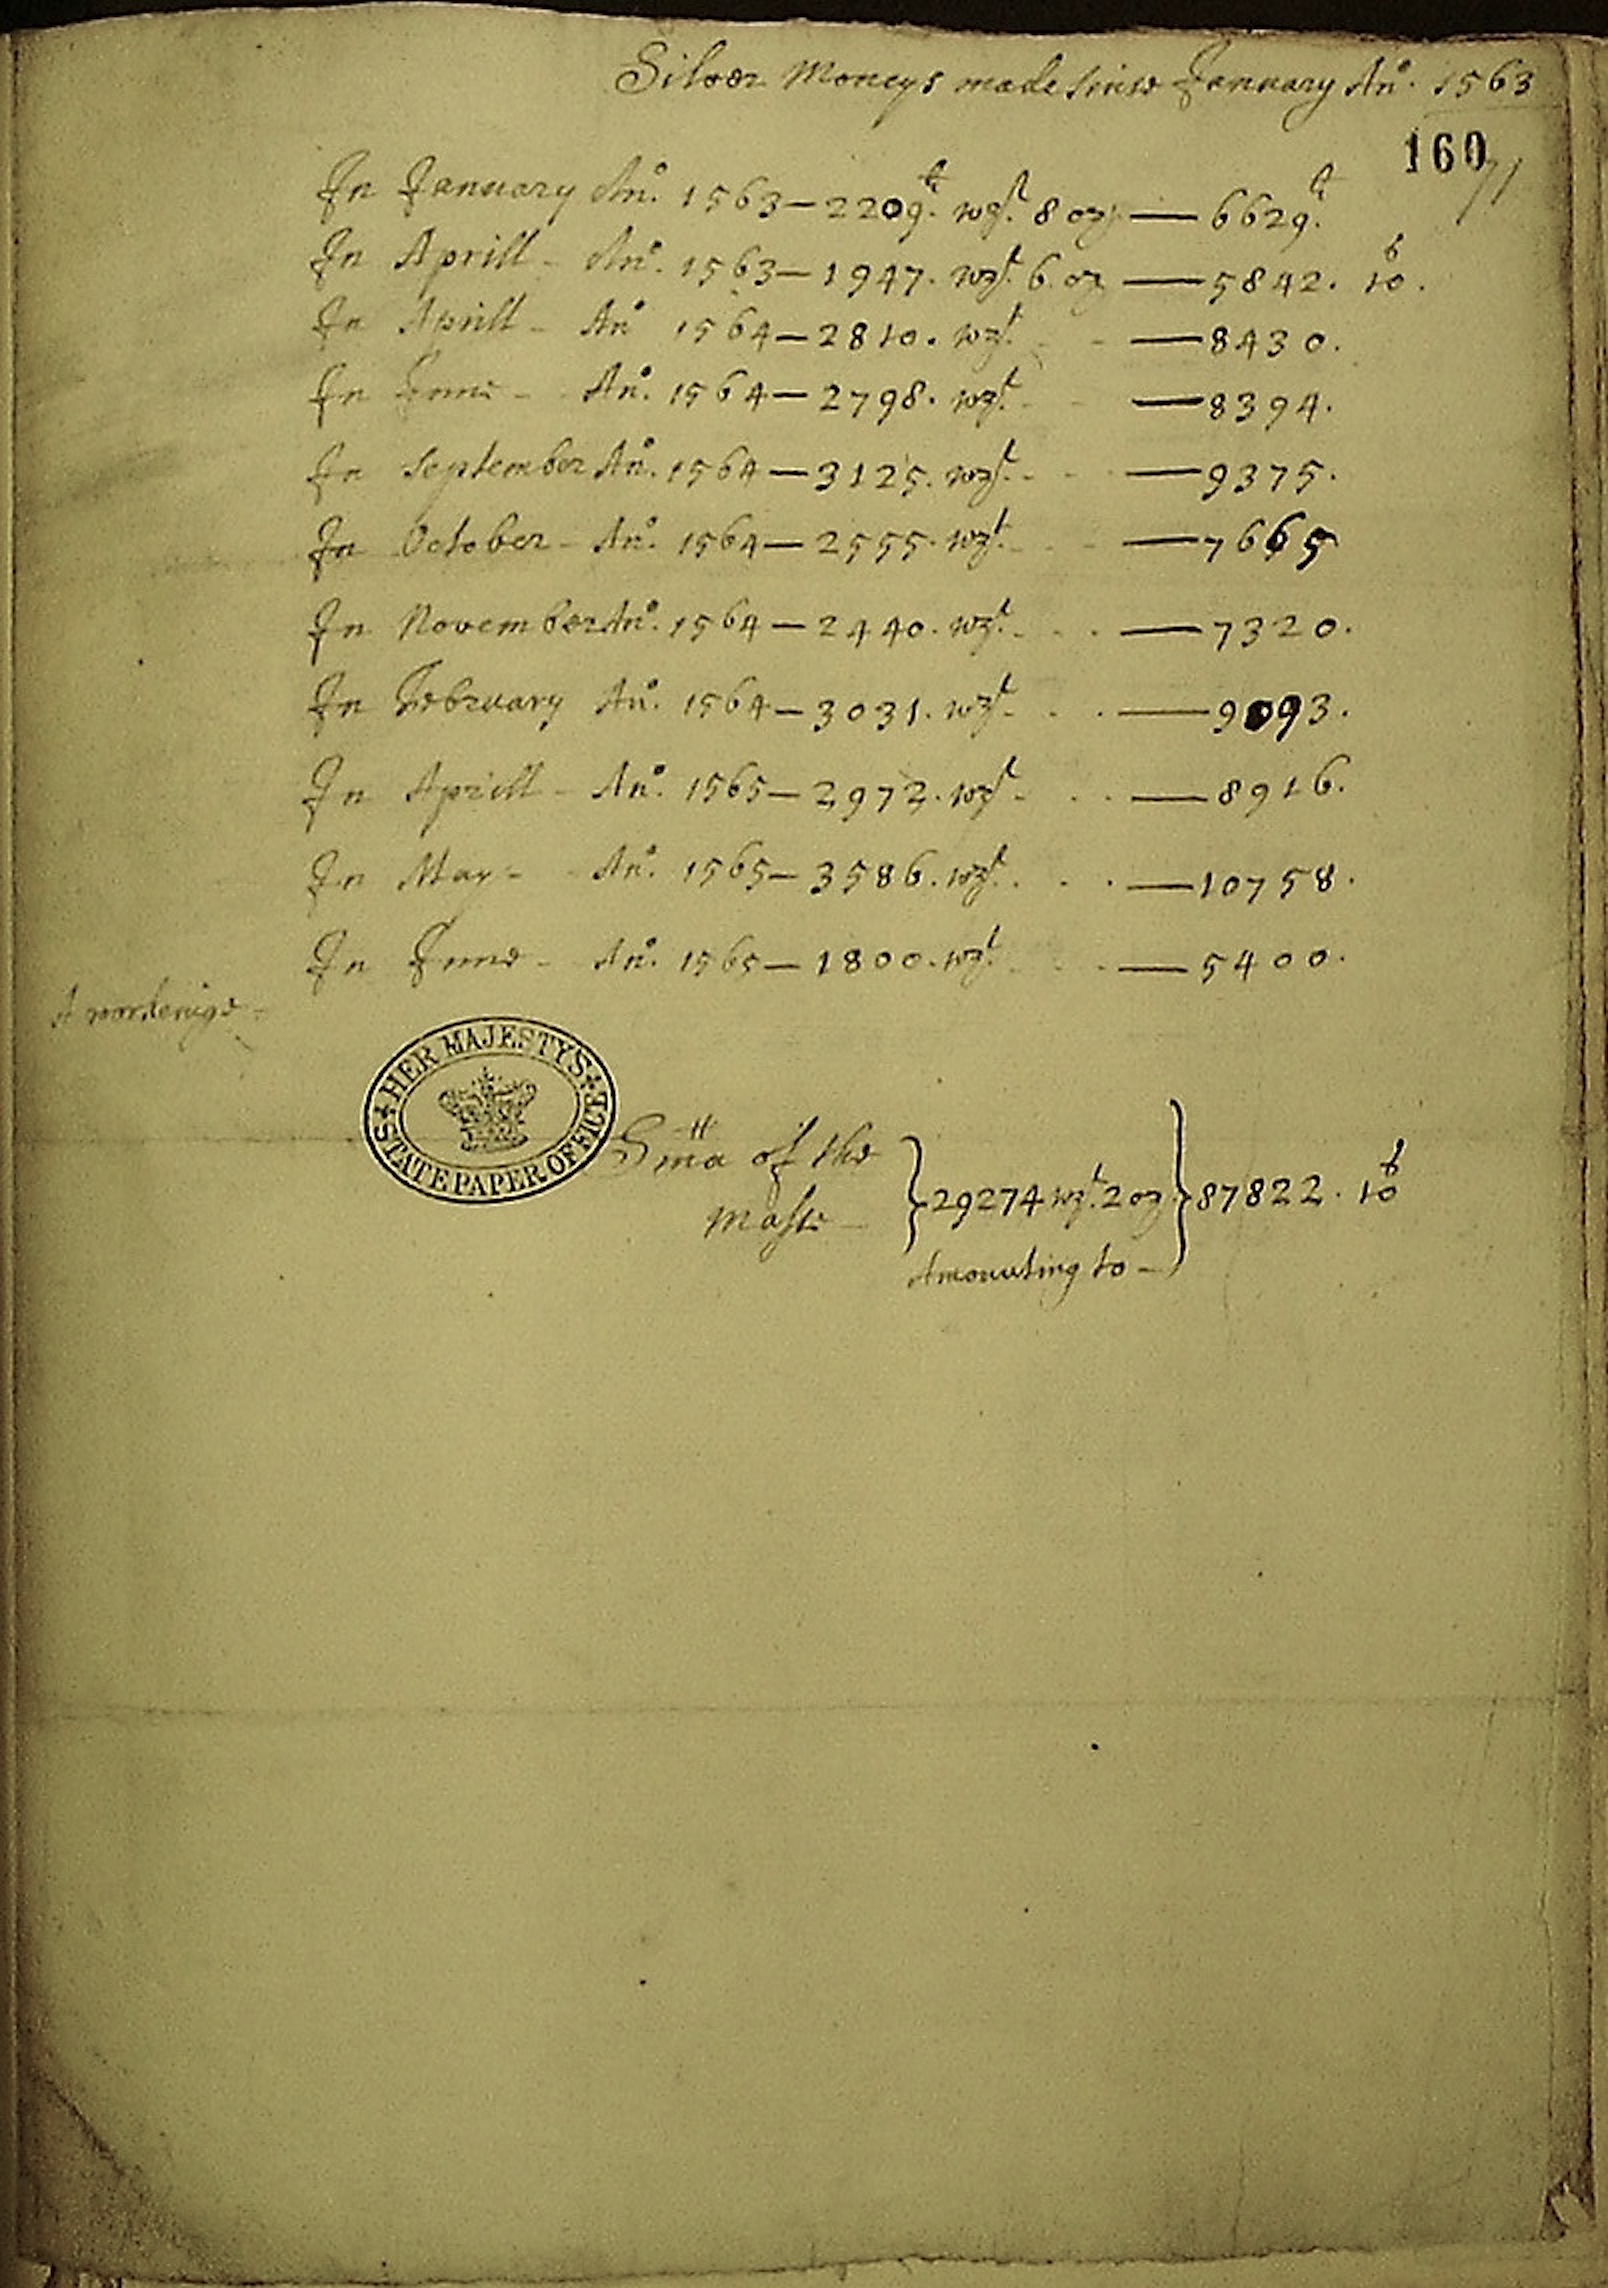 Silver Moneys made sinse January Ano. 1563
160
71
In January Ano. 1563 — 2209li. wgt. 8 oz — 6629li.
In Aprill - Ano. 1563 — 1947. wgt. 6. oz — 5842. 10s.
In Aprill - Ano 1564 — 2810. wgt. - - — 8430.
In June - - Ano. 1564 — 2798. wgt. - - — 8394.
In September Ano. 1564 — 3125. wgt. - - - — 9375.
In October - Ano. 1564 — 2555. wgt. - - - — 7665
In November Ano. 1564 — 2440. wgt. - . . — 7320.
In February Ano. 1564 — 3031. wgt - . . — 9093.
In Aprill - Ano. 1565 — 2972. wgt - . . — 8916.
In May - - Ano. 1565 — 3586. wgt. . . . — 10758.
In June - Ano. 1565 — 1800. wgt. . . . — 5400.
HER MAJESTY'S STATE PAPER OFFICE
Sma of the
Maste —
} 29274 wgt. 2 oz } 87822. 10s
Amounting to —